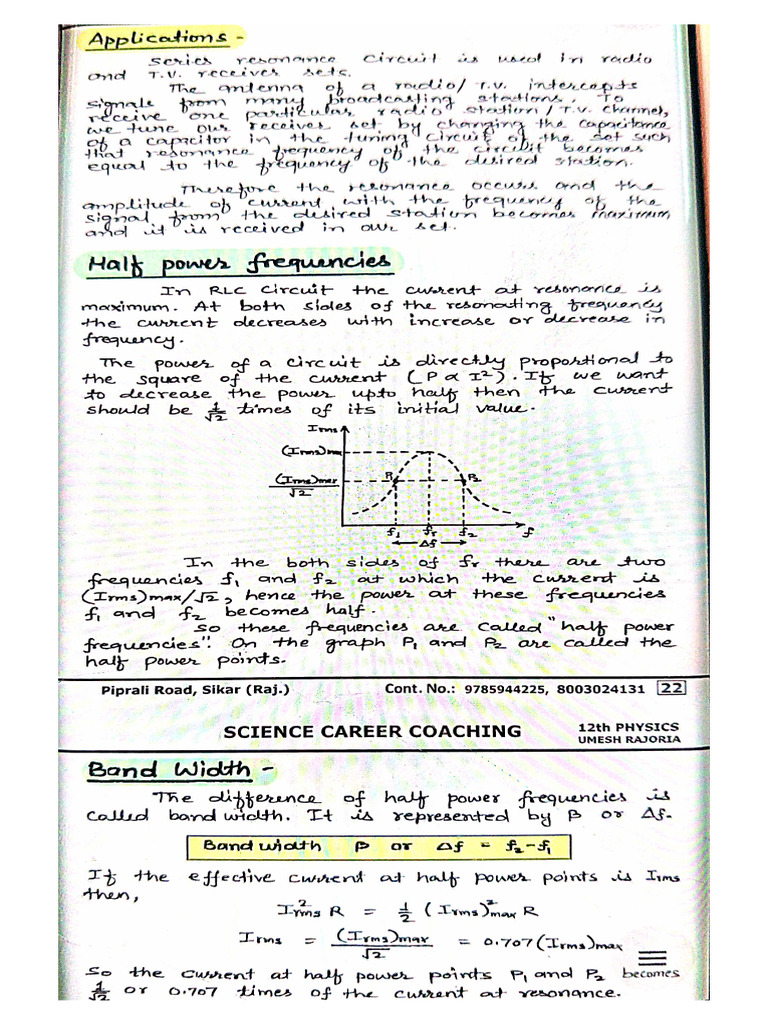 Applications -
Series resonance circuit is used in radio
and T.V. receiver sets.
The antenna of a radio/T.V. intercepts
signals from many broadcasting stations. To
receive one particular radio station/T.V. channel,
we tune our receiver set by changing the capacitance
of a capacitor in the tuning circuit of the set such
that resonance frequency of the circuit becomes
equal to the frequency of the desired station.
Therefore the resonance occurs and the
amplitude of current with the frequency of the
signal from the desired station becomes maximum
and it is received in our set.
Half power frequencies
In RLC circuit the current at resonance is
maximum. At both sides of the resonating frequency
the current decreases with increase or decrease in
frequency.
The power of a circuit is directly proportional to
the square of the current (P ∝ I²). If we want
to decrease the power upto half then the current
should be 1/√2 times of its initial value.
Irms
(Irms)max
(Irms)max/√2
P1 P2
f1 fr f2 f
Δf
In the both sides of fr there are two
frequencies f1 and f2 at which the current is
(Irms)max/√2, hence the power at these frequencies
f1 and f2 becomes half.
So these frequencies are called "half power
frequencies". On the graph P1 and P2 are called the
half power points.
Piprali Road, Sikar (Raj.) Cont. No.: 9785944225, 8003024131 22
SCIENCE CAREER COACHING 12th PHYSICS
UMESH RAJORIA
Band Width -
The difference of half power frequencies is
called band width. It is represented by β or Δf.
Band width β or Δf = f2 - f1
If the effective current at half power points is Irms
then,
I²rms R = 1/2 (Irms)²max R
Irms = (Irms)max/√2 = 0.707 (Irms)max
So the current at half power points P1 and P2 becomes
1/√2 or 0.707 times of the current at resonance.